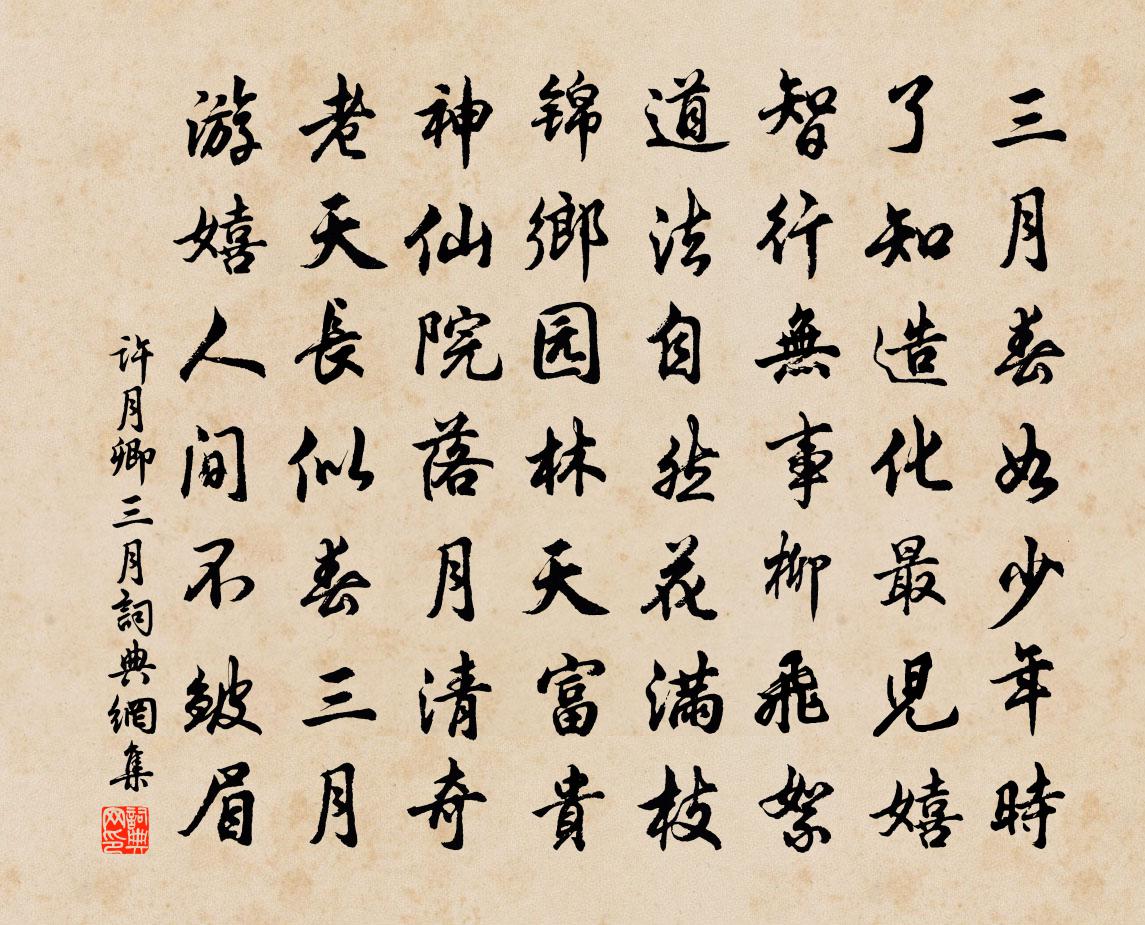 三月春如少年時
了知造化最児嬉
智行無事柳飛絮
道法自然花满枝
锦鄉园林天富貴
神仙院落月清奇
老天長似春三月
游嬉人间不皴眉
许月卿三月詞典網集
詞典网印